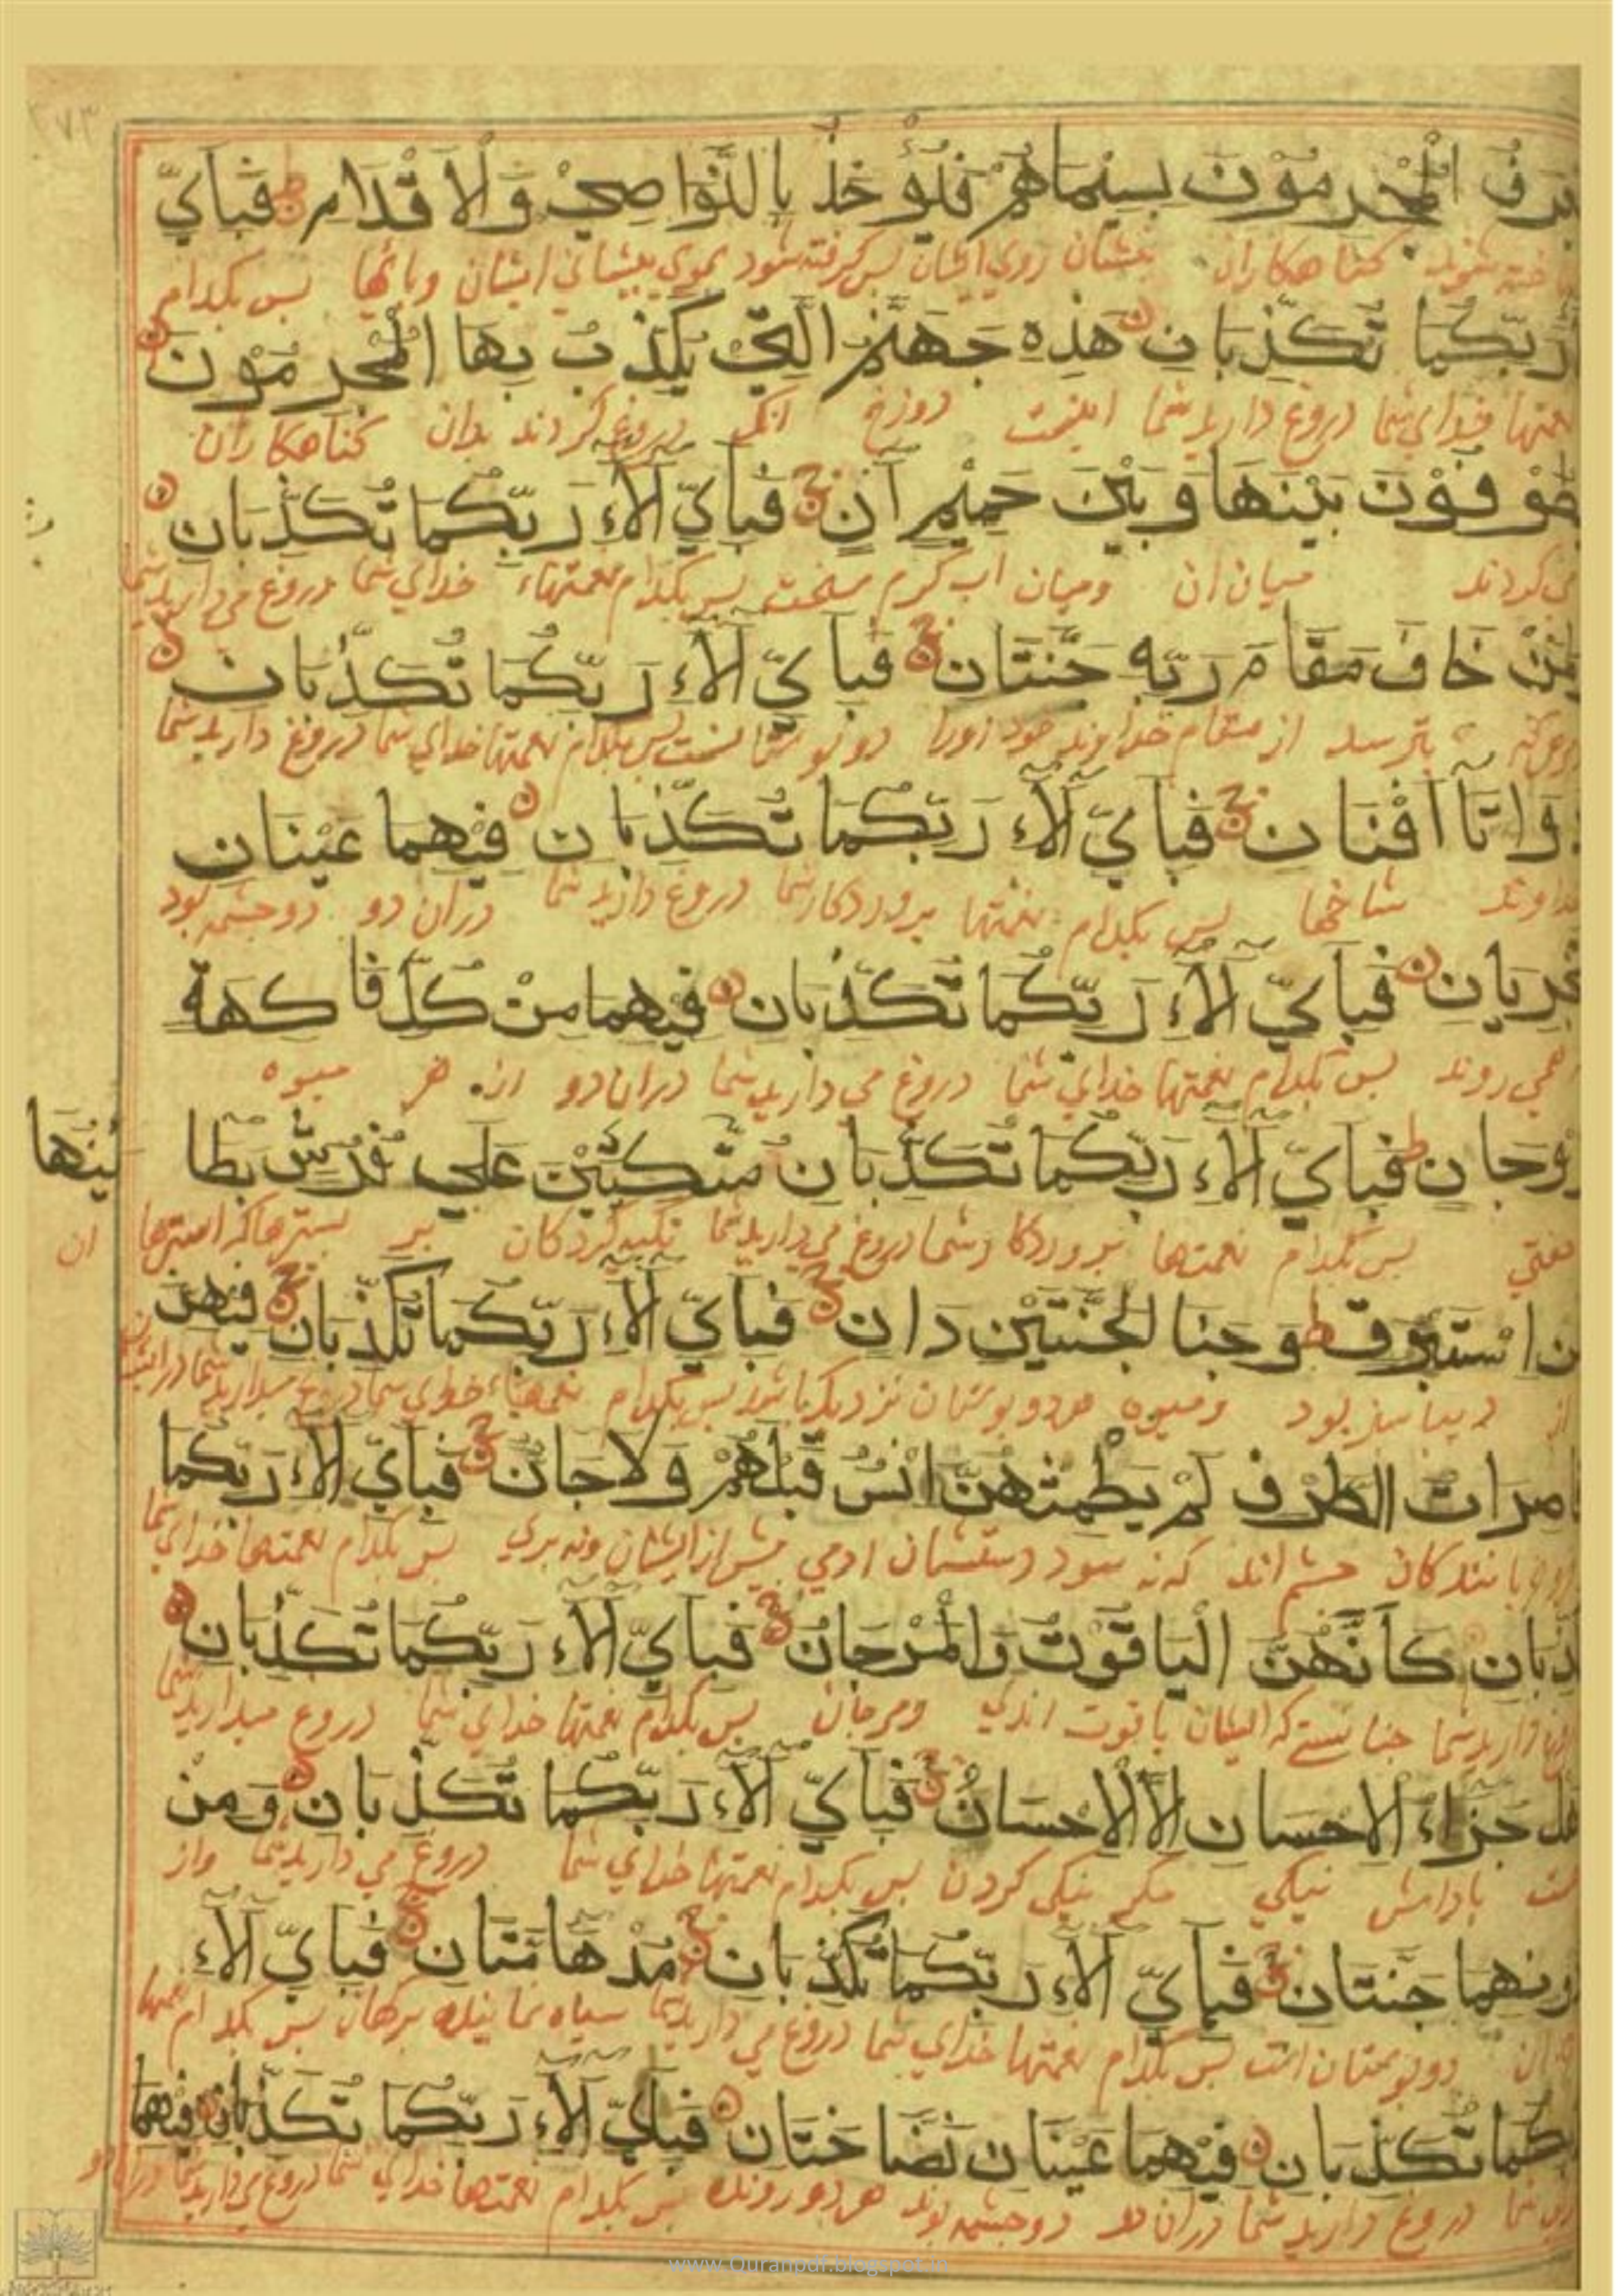 ٢٧٣
يعرف المجرمون بسيماهم فيؤخذ بالنواصي والاقدام فباي
كناهكاران بنشان روي ايشان بس كرفته شود بموي بيشاني ايشان وبايها بس بكدام
رَبِّكُمَا تُكَذِّبَانِ هَذِهِ جَهَنَّمُ الَّتِي يُكَذِّبُ بِهَا الْمُجْرِمُونَ
نعمتها خداي شما دروغ داريد شما اينست دوزخ انك دروغ كردند بدان كناهكاران
يطوفون بَيْنَهَا وَبَيْنَ حَمِيمٍ آنٍ فَبِأَيِّ آلَاءِ رَبِّكُمَا تُكَذِّبَانِ
مي كردند ميان ان وميان اب كرم سخت بس بكدام نعمتهاء خداي شما دروغ مي داريد شما
ولمن خَافَ مَقَامَ رَبِّهِ جَنَّتَانِ فَبِأَيِّ آلَاءِ رَبِّكُمَا تُكَذِّبَانِ
بترسد از مقام خداوند خود اورا دو بوستانست بس بكدام نعمتها خداي شما دروغ داريد شما
ذَوَاتَا أَفْنَانٍ فَبِأَيِّ آلَاءِ رَبِّكُمَا تُكَذِّبَانِ فِيهِمَا عَيْنَانِ
خداوند شاخها بس بكدام نعمتها بروردكار شما دروغ داريد شما دران دو دو جشمه بود
تَجْرِيَانِ فَبِأَيِّ آلَاءِ رَبِّكُمَا تُكَذِّبَانِ فِيهِمَا مِنْ كُلِّ فَاكِهَةٍ
همي روند بس بكدام نعمتها خداي شما دروغ مي داريد شما دران دو از هر ميوه
زَوْجَانِ فَبِأَيِّ آلَاءِ رَبِّكُمَا تُكَذِّبَانِ مُتَّكِئِينَ عَلَى فُرُشٍ بَطَائِنُهَا
بس بكدام نعمتها بروردكار شما دروغ مي داريد شما تكيه كردكان بر بسترها كه استرها ان
من اسْتَبْرَقٍ وَجَنَا الْجَنَّتَيْنِ دَانٍ فَبِأَيِّ آلَاءِ رَبِّكُمَا تُكَذِّبَانِ فِيهِنَّ
از ديبا بود وميوه هر دو بوستان نزديك باشد بس بكدام نعمتهاء خداي شما دروغ ميداريد شما
قاصِرَاتُ الطَّرْفِ لَمْ يَطْمِثْهُنَّ إِنْسٌ قَبْلَهُمْ وَلَا جَانٌّ فَبِأَيِّ آلَاءِ رَبِّكُمَا
كان جشم اند كه نه بسود دستشان ادمي بيش از ايشان ونه بري بس بكدام نعمتها خداي شما
تكذِّبَانِ كَأَنَّهُنَّ الْيَاقُوتُ وَالْمَرْجَانُ فَبِأَيِّ آلَاءِ رَبِّكُمَا تُكَذِّبَانِ
داريد شما جنانستي كه ايشان ياقوت اندي ومرجان بس بكدام نعمتها خداي شما دروغ ميداريد شما
هَلْ جَزَاءُ الْإِحْسَانِ إِلَّا الْإِحْسَانُ فَبِأَيِّ آلَاءِ رَبِّكُمَا تُكَذِّبَانِ وَمِنْ
باداش نيكي مكر نيكي كردن بس بكدام نعمتها خداي شما دروغ مي داريد شما واز
دُونِهِمَا جَنَّتَانِ فَبِأَيِّ آلَاءِ رَبِّكُمَا تُكَذِّبَانِ مُدْهَامَّتَانِ فَبِأَيِّ آلَاءِ
دو بوستان است بس بكدام نعمتها خداي شما دروغ مي داريد شما سياه بس بكدام نعمتها
ربكُمَا تُكَذِّبَانِ فِيهِمَا عَيْنَانِ نَضَّاخَتَانِ فَبِأَيِّ آلَاءِ رَبِّكُمَا تُكَذِّبَانِ فِيهِمَا
خداي شما دروغ داريد شما دران دو دو جشمه بوند بس بكدام نعمتها خداي شما دروغ مي داريد شما دران دو
www.Quranpdf.blogspot.in